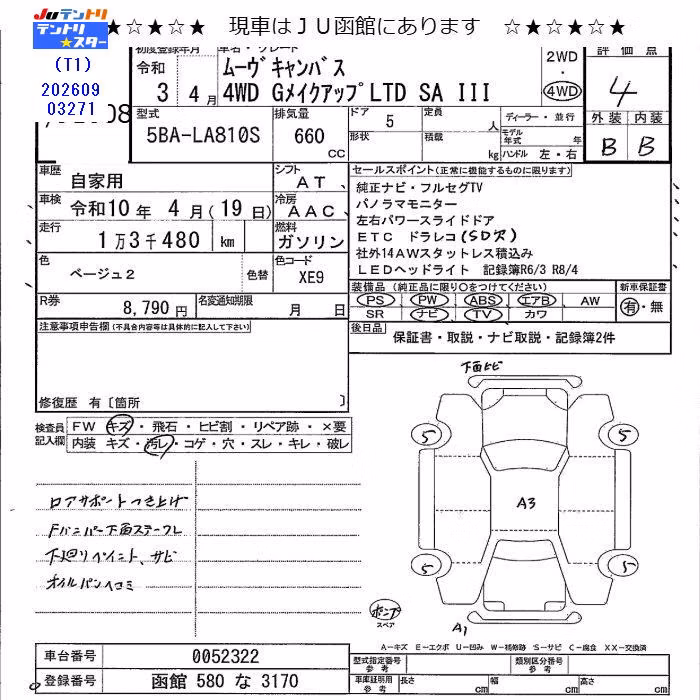 Juテントリ
テントリスター
★☆★☆★☆★ 現車はＪＵ函館にあります ☆★☆★☆★☆
(T1)
202609
03271
初度登録年月
令和
3 4月
車名・グレード
ムーヴキャンバス
4WD GメイクアップLTD SA III
2WD
・
4WD
評価点
4
外装 内装
B B
型式
5BA-LA810S
排気量
660
CC
ドア
5
定員
人
形状
積載
kg
ディーラー・並行
モデル年式 年
ハンドル 左・右
車歴
自家用
シフト
AT、
車検
令和10年 4月(19日)
冷房
AAC、
走行
1万3千480 km
燃料
ガソリン
色
ベージュ2
色替
色コード
XE9
R券
8,790円
名変通知期限
月 日
セールスポイント(正常に機能するものに限ります)
純正ナビ・フルセグTV
パノラマモニター
左右パワースライドドア
ETC ドラレコ(SD欠)
社外14AWスタットレス積込み
LEDヘッドライト 記録簿R6/3 R8/4
装備品 (純正品に限り○をつけてください)
PS PW ABS エアB AW
SR ナビ TV カワ
新車保証書
有・無
後日品
保証書・取説・ナビ取説・記録簿2件
注意事項申告欄(不具合内容等は具体的に記入して下さい)
修復歴 有〔箇所 〕
検査員記入欄
FW キズ・飛石・ヒビ割・リペア跡・×要
内装 キズ・汚レ・コゲ・穴・スレ・キレ・破レ
ロアサポートつき上げ
Fバンパー下面ステークレ
下廻りペイント、サビ
オイルパンヘコミ
下面ヒビ
5 5
A3
5 5
ポンプ
スペア
A1
A－キズ E－エクボ U－凹み W－補修跡 S－サビ C－腐食 XX－交換済
車台番号
0052322
登録番号
函館 580 な 3170
型式指定番号
参考
類別区分番号
参考
車庫証明用
参考
長さ
cm
幅
cm
高さ
cm